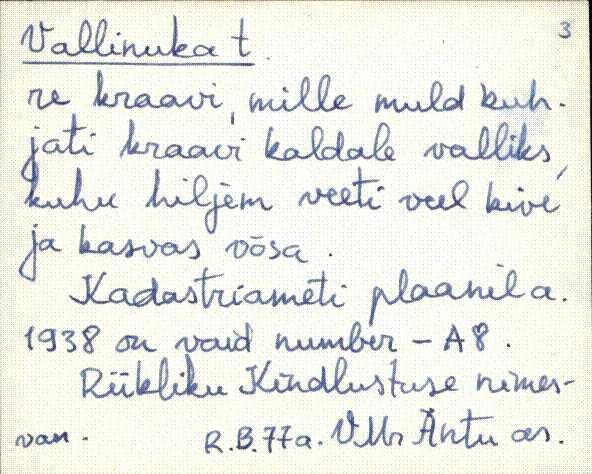 Vallinuka t. 3
re kraavi, mille muld kuh-
jati kraavi kaldale valliks,
kuhu hiljem veeti veel kive
ja kasvas võsa.
Kadastriameti plaanil a.
1938 on vaid number - A8.
Riikliku Kindlustuse nimes-
van. R.B.77a. VMr Äntu as.